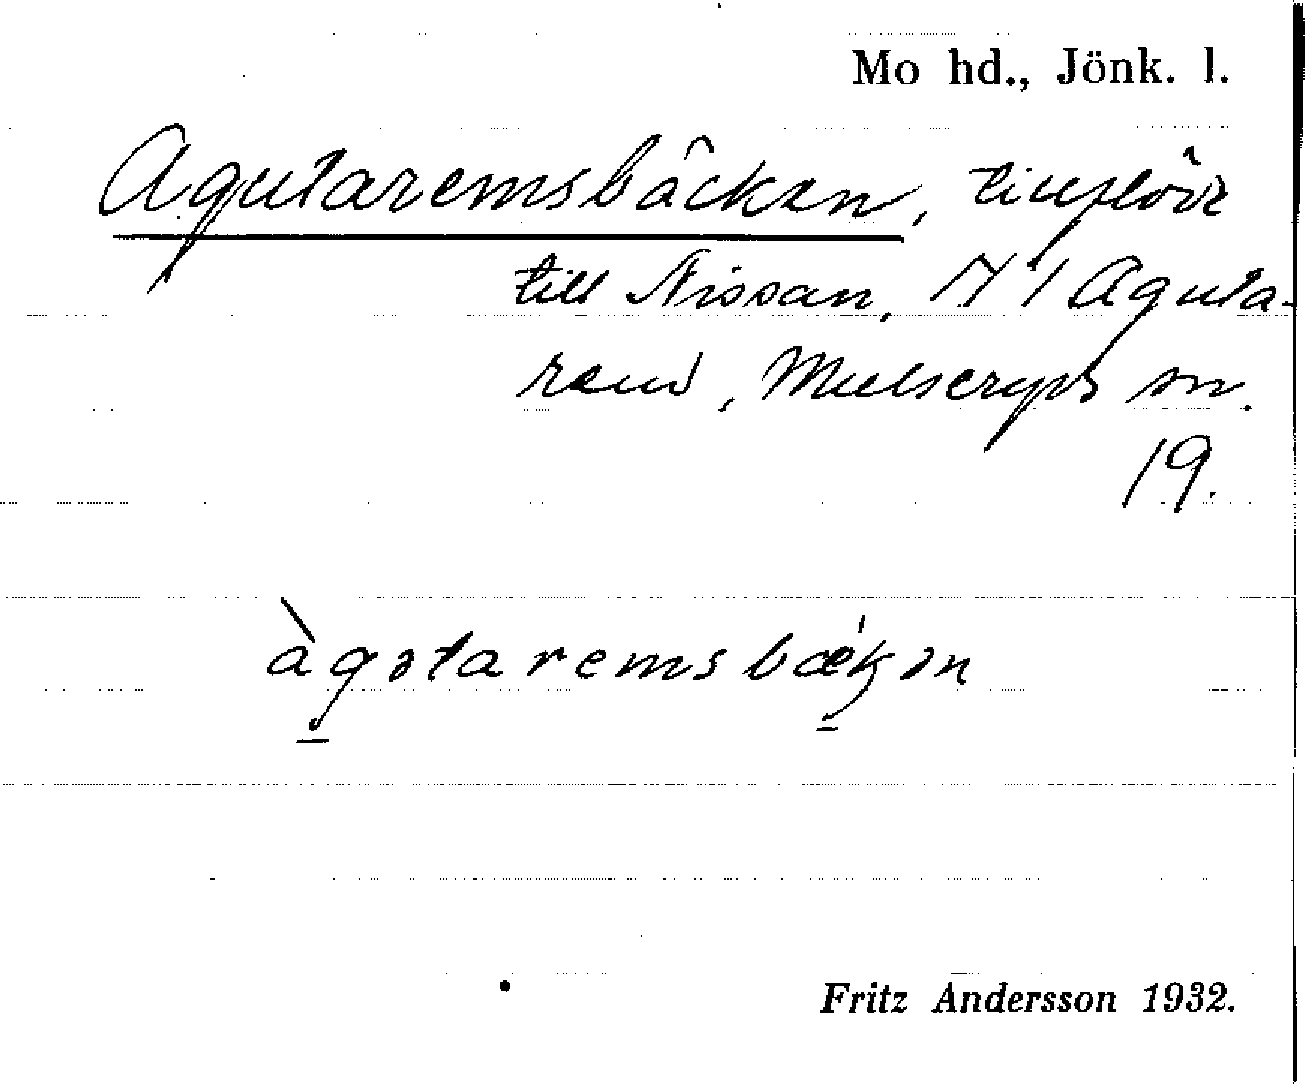 Mo hd., Jönk. l.
Agutaremsbäcken, tillflöde
till Nissan, N 1 Aguta-
rems, Mulseryds sn.
19.
àgətaremsbækən
Fritz Andersson 1932.